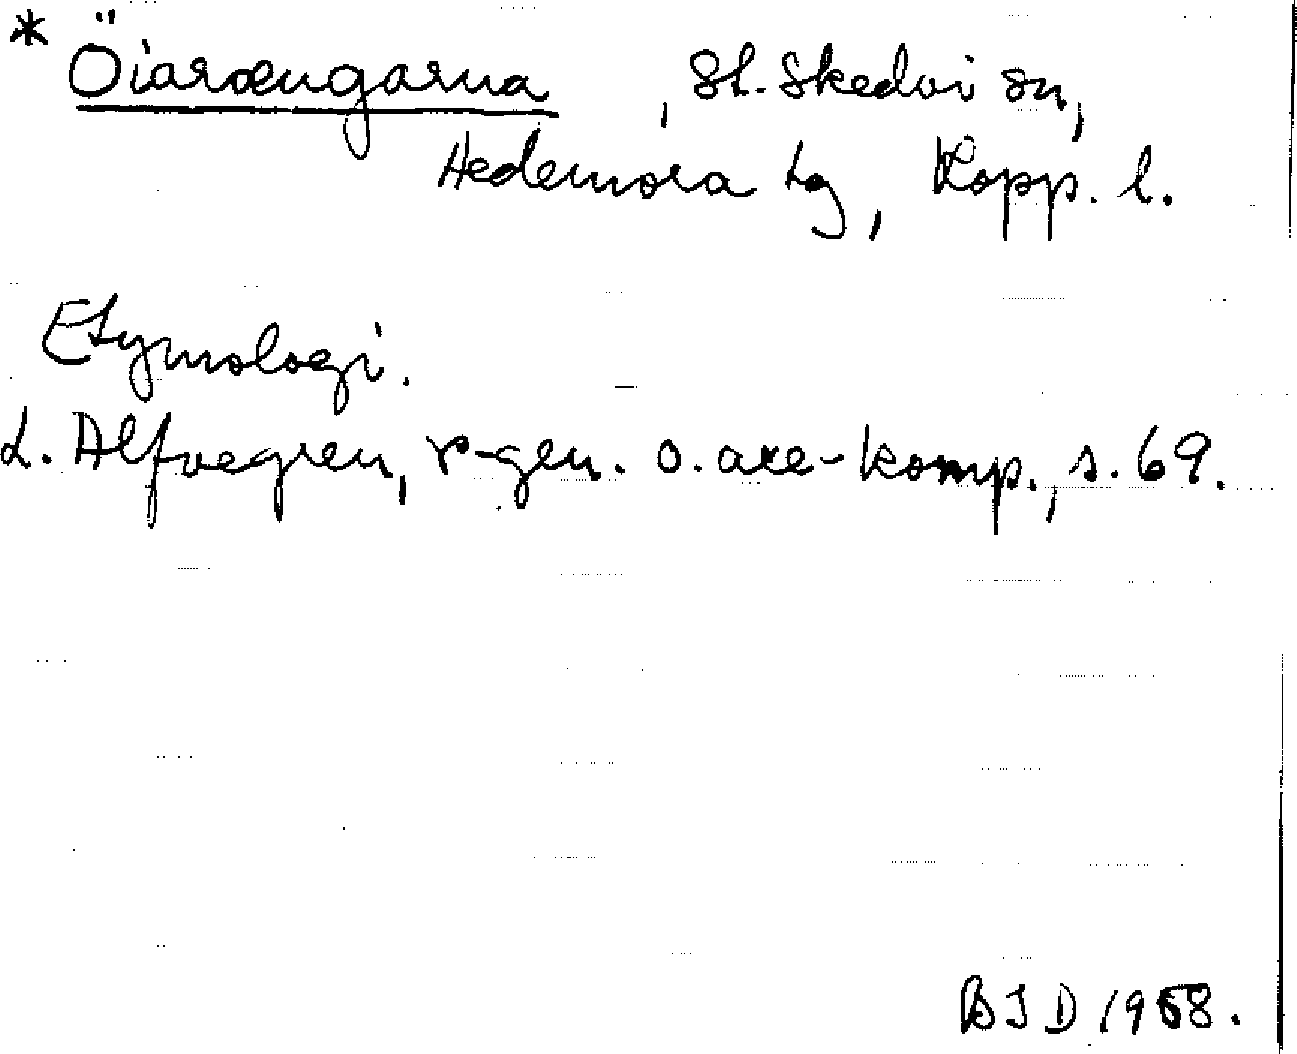 * Öiaræengarna, St. Skedvi sn,
Hedemora tg, Kopp. l.
Etymologi.
L. Alfvegren, r-gen. o. are-komp., s. 69.
BJD 1968.